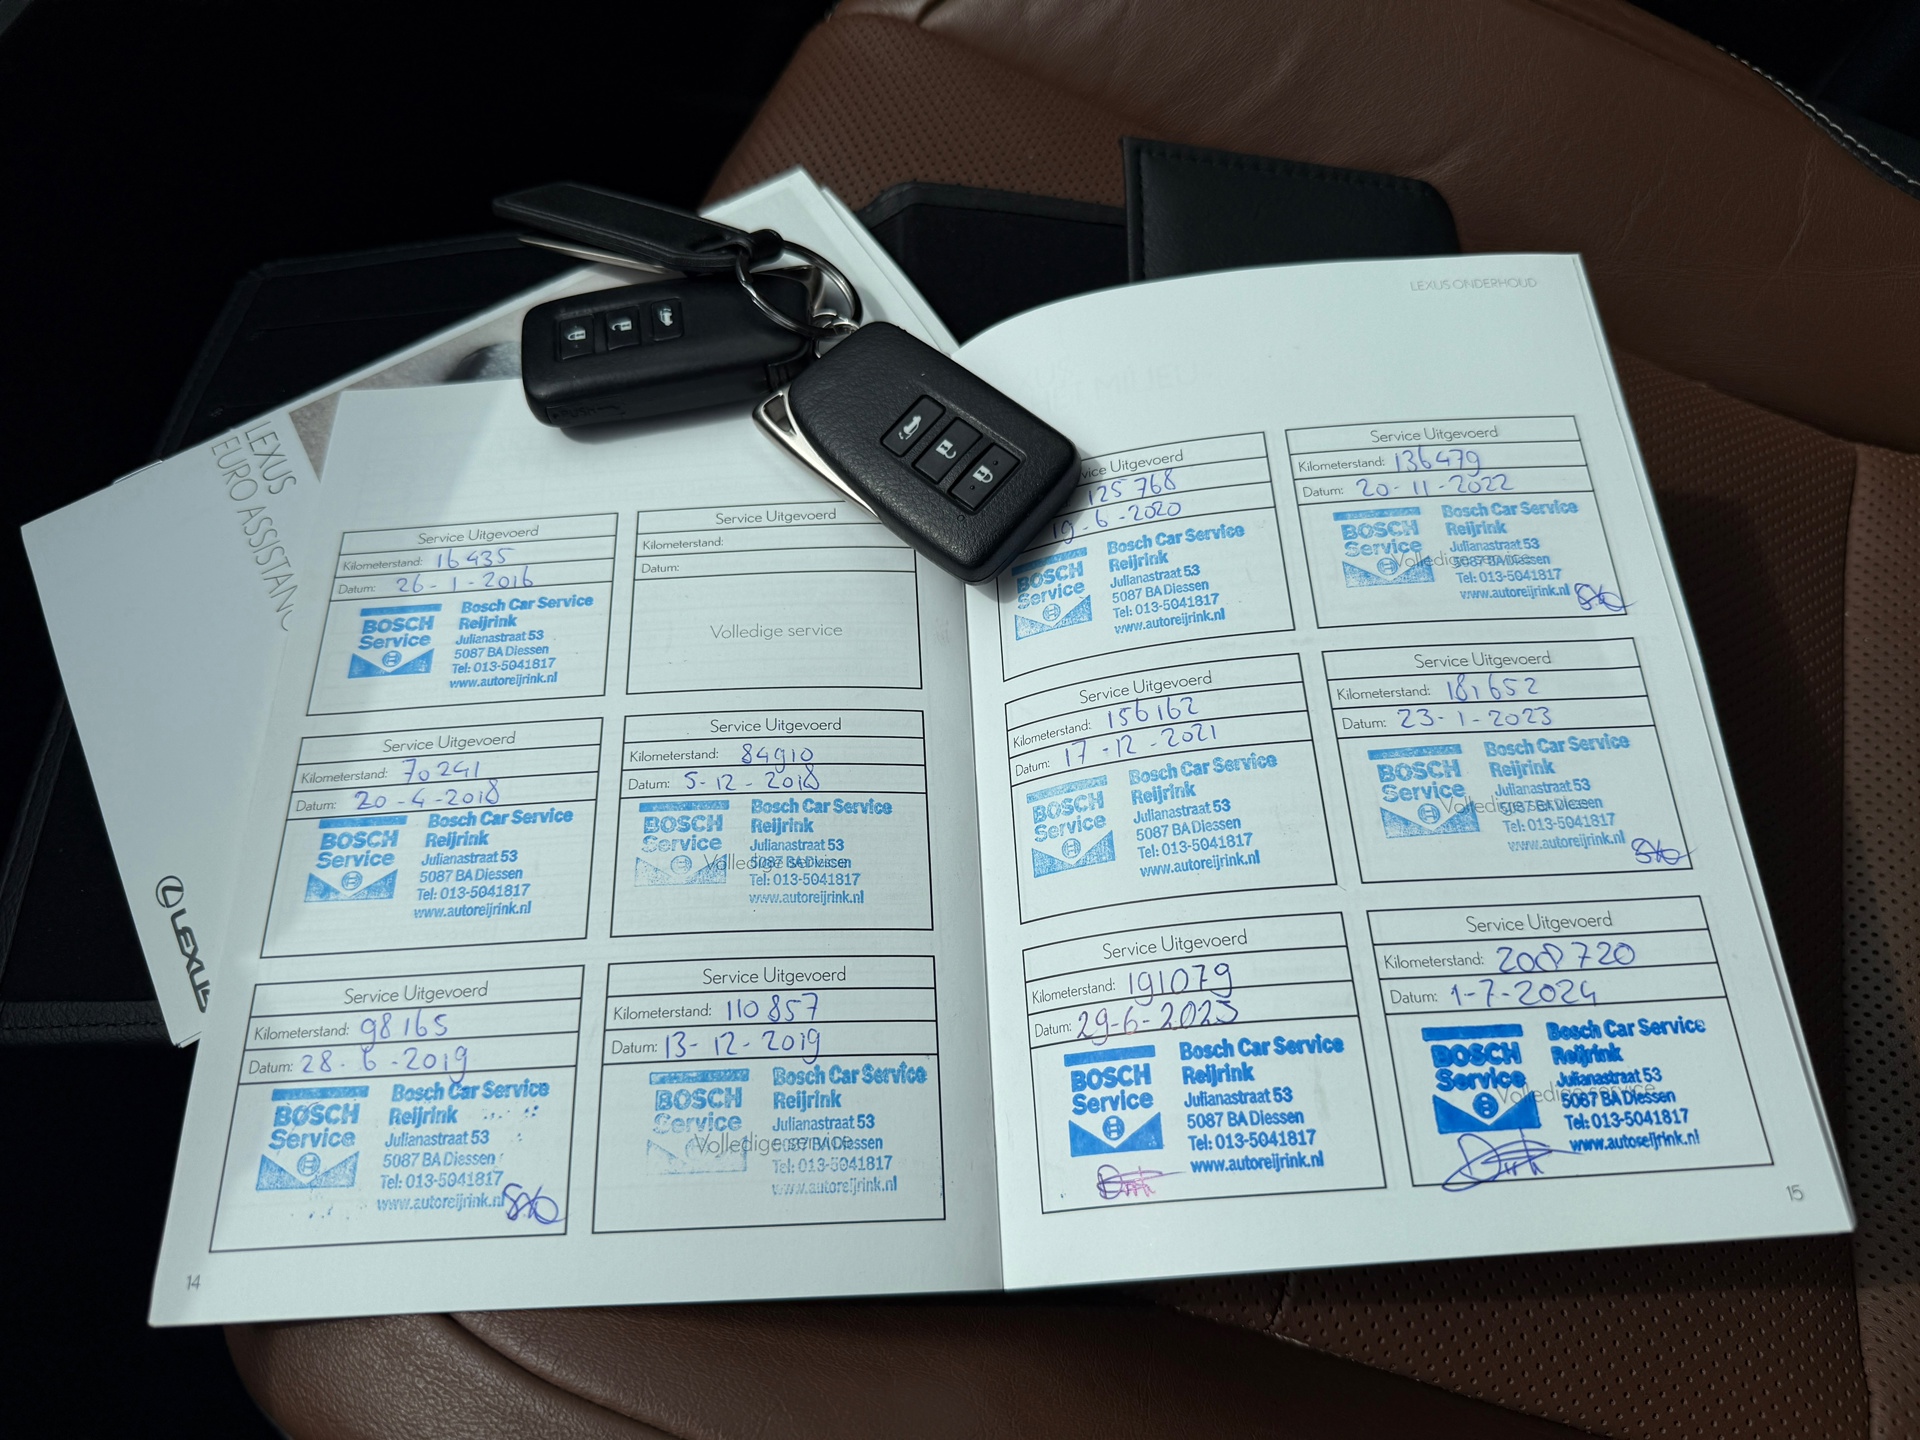 LEXUS
EURO ASSISTAN
LEXUS
Service Uitgevoerd
Kilometerstand: 16 435
Datum: 26-1-2016
BOSCH
Service
Bosch Car Service
Reijrink
Julianastraat 53
5087 BA Diessen
Tel: 013-5041817
www.autoreijrink.nl
Service Uitgevoerd
Kilometerstand:
Datum:
Volledige service
Service Uitgevoerd
Kilometerstand: 70 241
Datum: 20-4-2018
BOSCH
Service
Bosch Car Service
Reijrink
Julianastraat 53
5087 BA Diessen
Tel: 013-5041817
www.autoreijrink.nl
Service Uitgevoerd
Kilometerstand: 84910
Datum: 5-12-2018
BOSCH
Service
Volledige service
Bosch Car Service
Reijrink
Julianastraat 53
5087 BA Diessen
Tel: 013-5041817
www.autoreijrink.nl
Service Uitgevoerd
Kilometerstand: 98165
Datum: 28-6-2019
BOSCH
Service
Bosch Car Service
Reijrink
Julianastraat 53
5087 BA Diessen
Tel: 013-5041817
www.autoreijrink.nl
Service Uitgevoerd
Kilometerstand: 110 857
Datum: 13-12-2019
BOSCH
Service
Volledige service
Bosch Car Service
Reijrink
Julianastraat 53
5087 BA Diessen
Tel: 013-5041817
www.autoreijrink.nl
14
LEXUS ONDERHOUD
Service Uitgevoerd
125 768
19-6-2020
BOSCH
Service
Bosch Car Service
Reijrink
Julianastraat 53
5087 BA Diessen
Tel: 013-5041817
www.autoreijrink.nl
Service Uitgevoerd
Kilometerstand: 136479
Datum: 20-11-2022
BOSCH
Service
Volledige service
Bosch Car Service
Reijrink
Julianastraat 53
5087 BA Diessen
Tel: 013-5041817
www.autoreijrink.nl
Service Uitgevoerd
Kilometerstand: 156162
Datum: 17-12-2021
BOSCH
Service
Bosch Car Service
Reijrink
Julianastraat 53
5087 BA Diessen
Tel: 013-5041817
www.autoreijrink.nl
Service Uitgevoerd
Kilometerstand: 181652
Datum: 23-1-2023
BOSCH
Service
Volledige service
Bosch Car Service
Reijrink
Julianastraat 53
5087 BA Diessen
Tel: 013-5041817
www.autoreijrink.nl
Service Uitgevoerd
Kilometerstand: 191079
Datum: 29-6-2023
BOSCH
Service
Bosch Car Service
Reijrink
Julianastraat 53
5087 BA Diessen
Tel: 013-5041817
www.autoreijrink.nl
Service Uitgevoerd
Kilometerstand: 208720
Datum: 1-7-2024
BOSCH
Service
Volledige service
Bosch Car Service
Reijrink
Julianastraat 53
5087 BA Diessen
Tel: 013-5041817
www.autoreijrink.nl
15